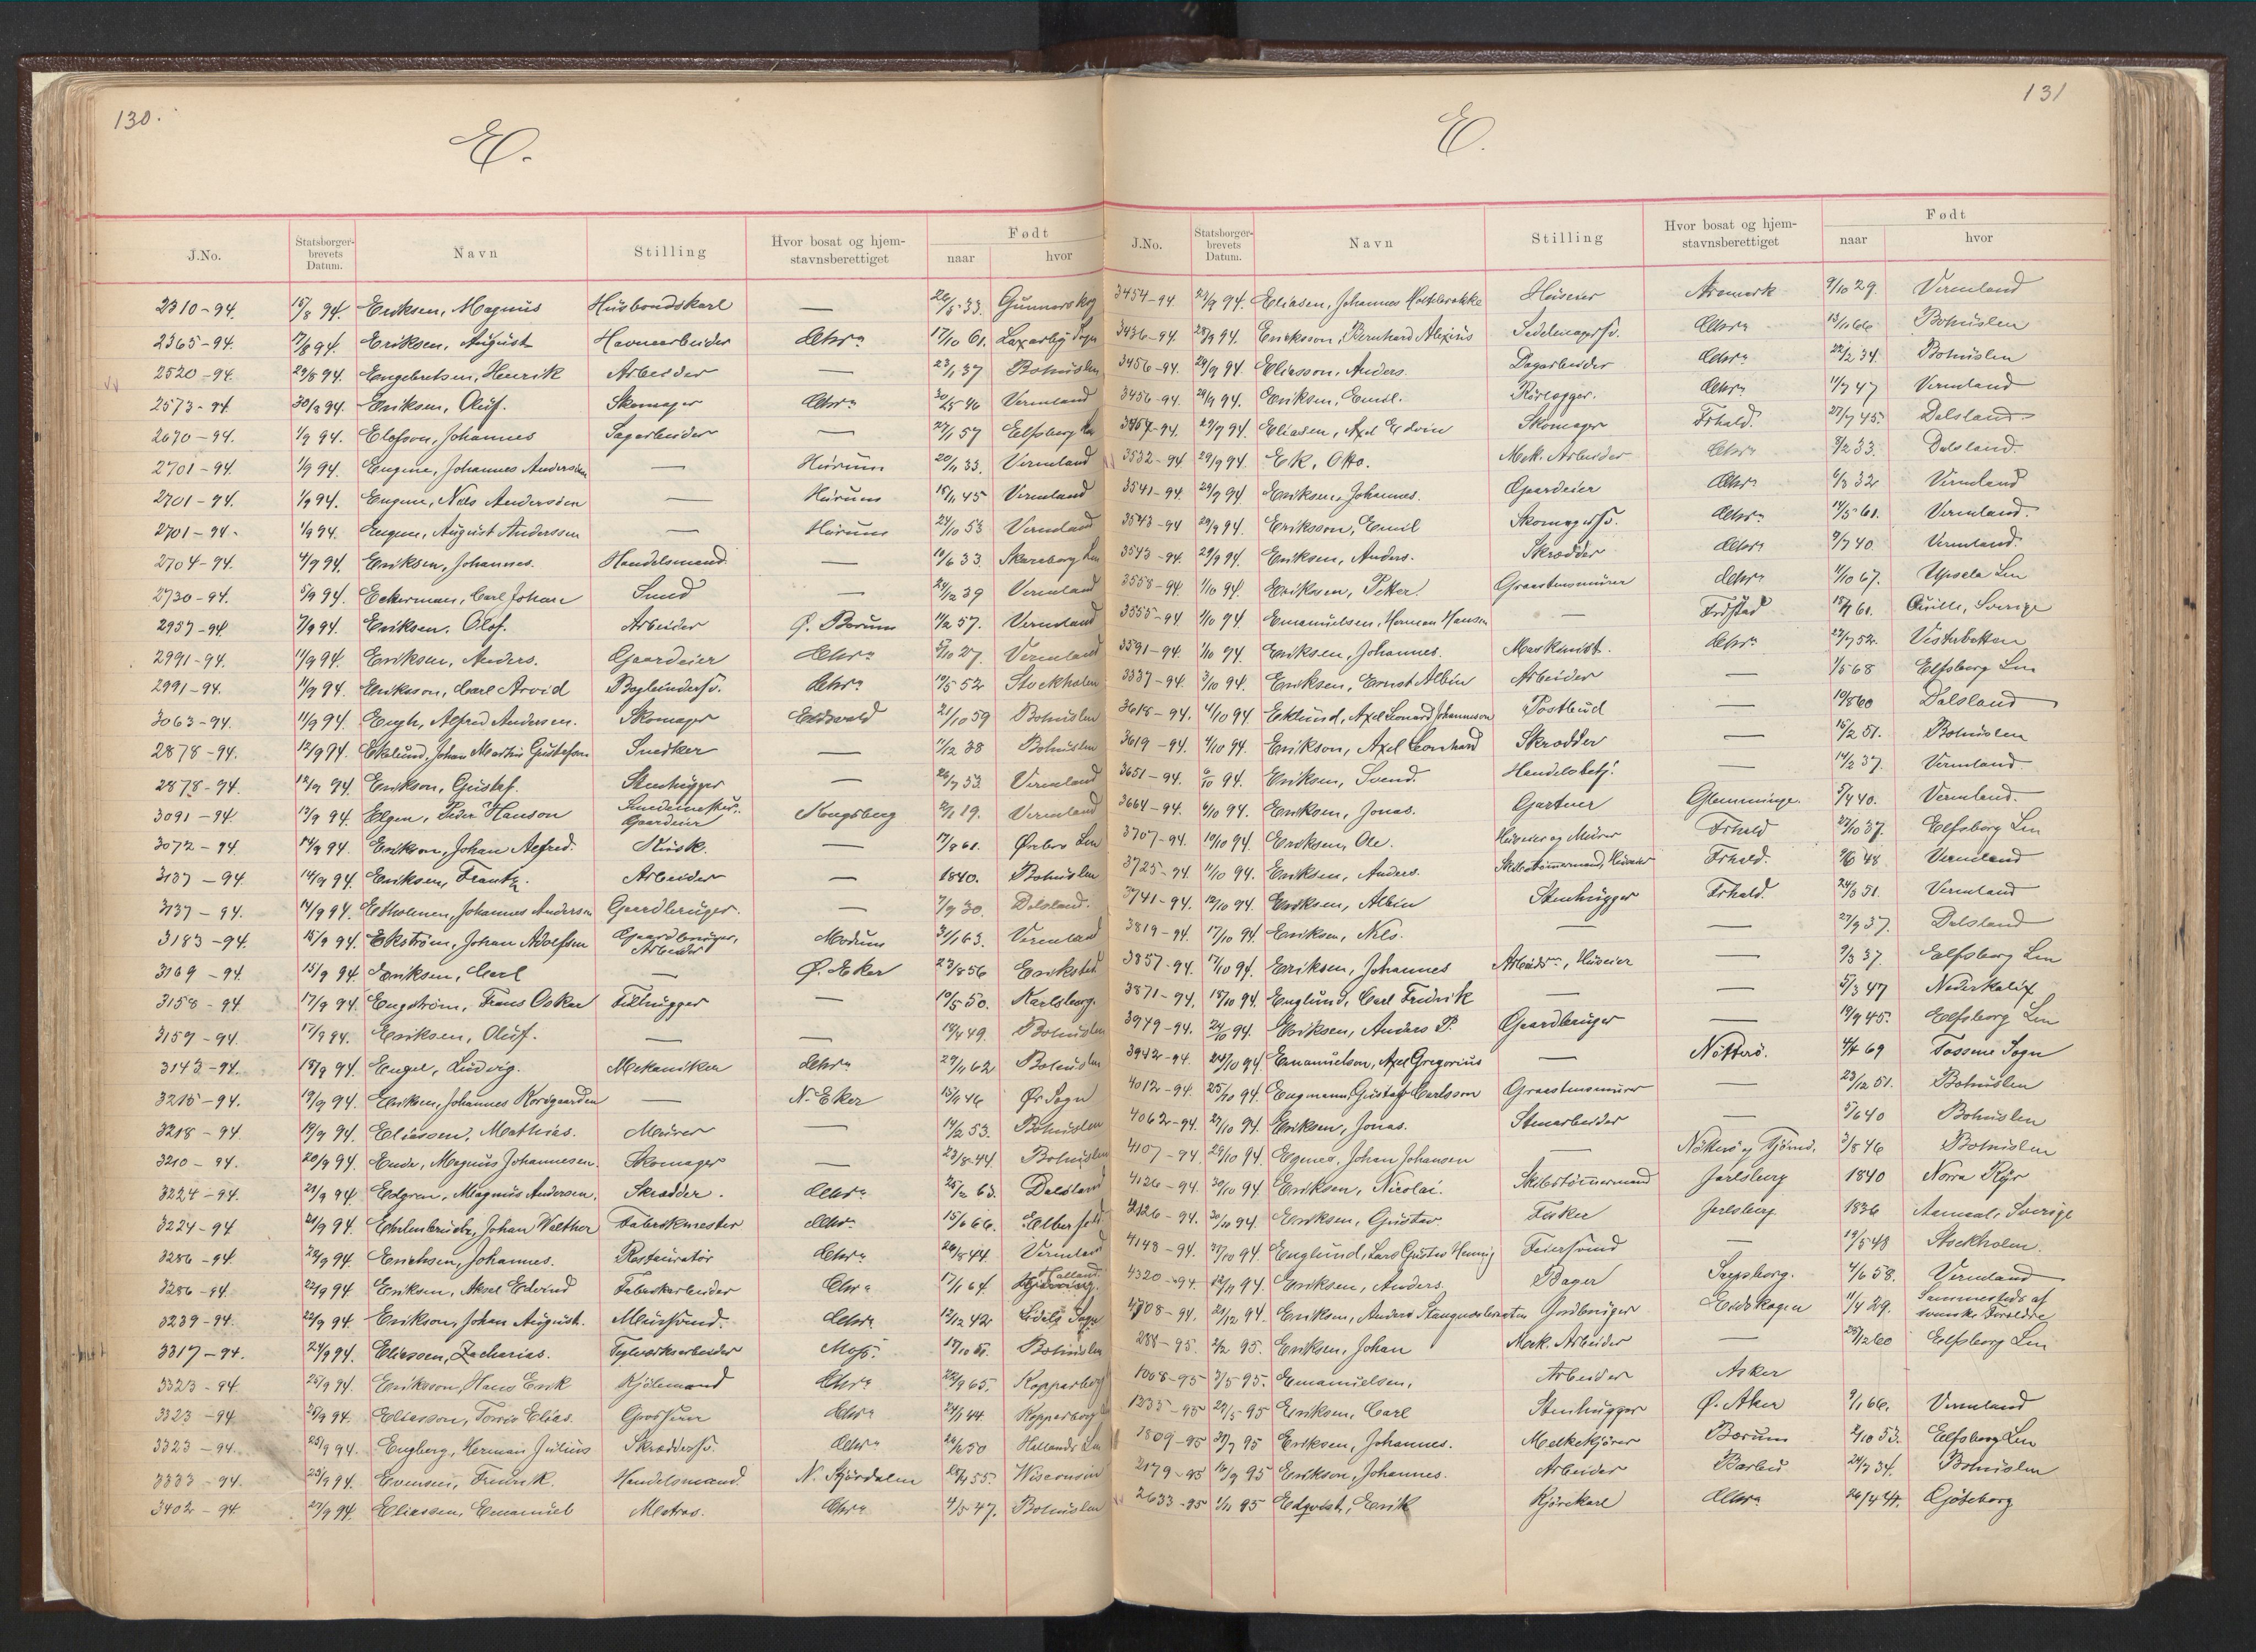 130.
E.
J.No. Statsborgerbrevets Datum. Navn Stilling Hvor bosat og hjemstavnsberettiget Født naar hvor
2310-94. 15/8 94. Eriksen, Magnus Husbondskarl — 26/5 33. Gunnarskog
2365-94. 17/8 94. Eriksen, August Havnearbeider Chra 17/10 61. Laxarby Sogn
2520-94. 29/8 94. Engebretsen, Henrik Arbeider — 23/1 37 Bohuslen
2573-94 30/8 94. Eriksen, Oluf. Skomager Chra 30/5 46 Vermland
2670-94. 1/9 94. Elofson, Johannes Sagarbeider — 27/1 57 Elfsborg Len
2701-94. 1/9 94. Eugene, Johannes Anderssen — Hurum 20/11 33. Vermland
2701-94. 1/9 94. Eugene, Nels Anderssen — Hurum 15/11 45 Vermland
2701-94. 1/9 94. Eugene, August Anderssen — Hurum 24/10 53 Vermland
2704-94. 4/9 94. Eriksen, Johannes. Handelsmand — 10/6 33. Skaraborg Len
2730-94. 5/9 94. Eckerman, Carl Johan Smed — 24/12 39 Vermland
2957-94. 7/9 94. Eriksen, Olof. Arbeider Ø. Bærum 11/2 57. Vermland
2991-94. 11/9 94. Eriksen, Anders. Gaardeier Chra 5/10 27. Vermland
2991-94. 11/9 94. Eriksson, Carl Arvid Bogbindersv. Chra 19/5 52 Stockholm
3063-94. 11/9 94. Engh, Alfred Andersen. Skomager Eidsvold 21/10 59 Bohuslen
2878-94. 12/9 94. Eklund, Johan Martin Gustafson Snedker — 11/12 38 Bohuslen
2878-94. 12/9 94. Erikson, Gustaf. Stenhugger — 26/7 53. Vermland
3091-94 13/9 94. Elgen, Peder Hanson Smedemester. Gaardeier Kongsberg 2/1 19. Vermland
3072-94 14/9 94. Erikson, Johan Alfred. Kusk. — 17/8 61. Ørebro Len
3137-94 14/9 94. Eriksen, Frantz. Arbeider — 1840. Bohuslen
3137-94. 14/9 94. Edholmen, Johannes Andersen Gaardbruger. — 7/9 30. Dalsland.
3183-94. 15/9 94. Ekström, Johan Adolfsen Gaardbruger, Arbeider Modum 31/1 63. Vermland
3169-94. 15/9 94. Eriksen, Carl — Ø. Eker 23/8 56
3158-94. 17/9 94. Engström, Frans Oskar Filhugger — 10/5 50. Karlsborg.
3159-94. 17/9 94. Eriksen, Oluf. — — 19/4 49. Bohuslen
3143-94. 18/9 94. Engel, Ludvig. Mekaniker Chra 29/11 62 Bohuslen
3215-94. 19/9 94. Eriksen, Johannes Kordgaarden — N. Eker 15/1 46 Ør Sogn
3218-94. 19/9 94. Eliassen, Mathias. Murer — 14/2 53. Bohuslen
3210-94. 20/9 94. Ende, Magnus Johannesen. Skomager — 23/8 44. Bohuslen
3224-94. 21/9 94. Edgren, Magnus Andersen. Skrædder. Chra 25/12 63. Dalsland
3224-94. 21/9 94. Johan Walther Fabrikmester Chra 15/6 66. Elberfeld
3286-94. 22/9 94. Erichsen, Johannes. Restauratør Chra 20/8 44. Vermland
3286-94. 22/9 94 Eriksen, Aksel Edvind Fabrikarbeider Chra 17/1 64. Halland
3239-94. 22/9 94. Erikson, Johan August. Mursvend. Chra 12/12 42 Sogn
3317-94. 24/9 94. Eliassen, Zacharias. Teglverksarbeider Moss. Bohuslen
3323-94. 25/9 94. Eriksson, Hans Erik Kjølemand Chra 22/9 65. Kopparberg
3323-94. 25/9 94. Eliasson, Torris Elias. Grosserer Chra 24/1 44. Kopparberg
3323-94. 25/9 94. Engberg, Herman Julius Skræddersv. Chra 26/6 50 Hallands Len
3333-94. 25/9 94. Evensen, Fredrik. Handelsmand N. Stjørdalen 55. Wisconsin
3402-94. 27/9 94. Eliassen, Emanuel Matros. Chra 4/5 47. Bohuslen
131
E.
J.No. Statsborgerbrevets Datum. Navn Stilling Hvor bosat og hjemstavnsberettiget Født naar hvor
3454-94. 27/9 94. Eliasen, Johannes Holtebrække Huseier Aremark 9/10 29. Vermland
3436-94. 28/9 94. Ericksson, Bernhard Alexius Sadelmagersv. Chra 13/11 66 Bohuslen
3456-94. 28/9 94. Eliasson, Anders. Dagarbeider Chra 22/2 34 Bohuslen
3456-94. 28/9 94. Eriksen, Emil. Rørlegger. Chra 11/7 47 Vermland
29/9 94. Eliasen, Axel Edvin Skomager Frhald. 27/7 45. Dalsland
3532-94 29/9 94. Ek, Otto. Mek. Arbeider Chra 3/2 33. Dalsland.
3541-94. 29/9 94. Eriksen, Johannes. Gaardeier Chra 6/3 32 Vermland
3543-94 29/9 94. Eriksson, Emil Skomagersv. Chra 14/5 61. Vermland.
3543-94. 29/9 94. Eriksen, Anders. Skrædder Chra 9/7 40. Vermland.
3558-94. 1/10 94. Eriksson, Petter. Graastensmurer Chra 11/10 67. Upsala Len
3555-94 1/10 94. Emanuelsen, Herman Hansen — Frdstad 61. Qville, Sverige
3591-94. 1/10 94. Eriksen, Johannes. Maskinist. Chra 27/7 52. Vesterbotten
3337-94. 3/10 94. Eriksen, Ernst Albin Arbeider — 1/5 68 Elfsborg Len
3618-94. 4/10 94. Eklund, Axel Leonard Johannesson Postbud — 10/8 60 Dalsland
3619-94. 4/10 94. Erikson, Axel Leonhard Skrædder — 16/2 51. Bohuslen
3651-94. 6/10 94. Eriksen, Svend. Handelsbetj. — 14/2 37. Vermland
3664-94. 6/10 94. Eriksen, Jonas. Gartner Glemminge. 40. Vermland.
3707-94. 10/10 94. Eriksen, Ole. Huseier og Murer Frhald 27/10 37. Elfsborg Len
3725-94 11/10 94. Eriksen, Anders. Skibstømmermand, Huseier Frhald. 9/6 48. Vermland
3741-94. 12/10 94. Eriksen, Albin Stenhugger Frhald. 24/3 51. Vermland
3819-94. 17/10 94. Eriksen, Nils. — — 27/9 37. Dalsland
3857-94. 17/10 94. Eriksen, Johannes Arbeider, Huseier — 9/3 37. Elfsborg Len
3871-94. 18/10 94. Englund, Carl Fredrik — — 5/3 47 Nederkalix
3949-94. 24/10 94. Eriksen, Anders P. Gaardbruger — 19/9 45. Elfsborg Len
3942-94. 24/10 94. Emanuelson, Axel Gregorius — Nøtterø. 4/4 69 Tossene Sogn
4012-94. 25/10 94. Engmann, Gustaf Carlsson Graastensmurer — 23/12 51. Bohuslen
4062-94. 27/10 94. Eriksen, Jonas. Stenarbeider — 5/6 40 Bohuslen
4107-94 29/10 94. Johan Johansen — Nøtterø og Tjømø. 3/8 46 Bohuslen
4126-94. 30/10 94. Eriksen, Nicolai. Skibstømmermand Jarlsberg 1840 Norra Ryr
4126-94. 30/10 94. Eriksen, Gustav Fisker Jarlsberg 1836 Aamaal, Sverige
4148-94. 31/10 94. Englund, Lars Gustav Hennig Feiersvend — 19/5 48 Stockholm.
4320-94 12/11 94. Eriksen, Anders. Bager Sarpsborg. 4/6 58. Vermland
4708-94. 21/12 94. Eriksen, Anders Stangnesbraaten Jordbruger Eidskogen 11/4 29. Sammesteds af svenske Forældre
288-95. 2/2 95. Eriksen, Johan Mek. Arbeider — 28/12 60 Elfsborg Len
1008-95 3/5 95. Emanuelsen, Arbeider Asker
1235-95 27/5 95 Eriksen, Carl Stenhugger Ø. Aker 9/1 66. Vermland
1809-95 31/7 95 Eriksen, Johannes. Melkekjører Bærum 2/10 53. Elfsborg Len
2179-95 16/9 95 Erikson, Johannes. Arbeider Barbu 24/7 34. Bohuslen
2633-95 1/11 95 Edqvist, Erik Kjørekarl Chra 26/4 44. Gjøteborg